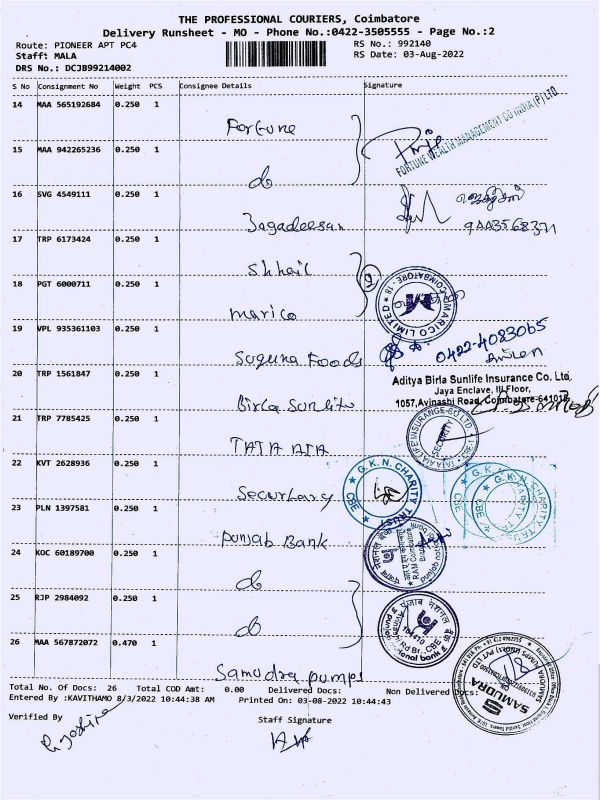 THE PROFESSIONAL COURIERS, Coimbatore
Delivery Runsheet - MO - Phone No.:0422-3505555 - Page No.:2
Route: PIONEER APT PC4
Staff: MALA
DRS No.: DCJB99214002
RS No.: 992140
RS Date: 03-Aug-2022
S No Consignment No Weight PCS Consignee Details Signature
14 MAA 565192684 0.250 1
Fortune
FORTUNE WEALTH MANAGEMENT CO INDIA (P) LTD.
15 MAA 942265236 0.250 1
do
16 SVG 4549111 0.250 1
Jagadeesan
9443568371
17 TRP 6173424 0.250 1
18 PGT 6000711 0.250 1
marico
MARICO LIMITED
COIMBATORE - 18
19 VPL 935361103 0.250 1
Suguna Foods
0422-4083065
20 TRP 1561847 0.250 1
Birla Sunlife
Aditya Birla Sunlife Insurance Co. Ltd.
Jaya Enclave, III Floor,
1057, Avinashi Road, Coimbatore-641018
21 TRP 7785425 0.250 1
TATA AIA
22 KVT 2628936 0.250 1
G.K.N. CHARITY TRUST
CBE
G.K.N. CHARITY TRUST
CBE
23 PLN 1397581 0.250 1
Punjab Bank
24 KOC 60189700 0.250 1
do
25 RJP 2984092 0.250 1
do
26 MAA 567872072 0.470 1
Samudra pumps
SAMUDRA
Total No. Of Docs: 26 Total COD Amt: 0.00 Delivered Docs: Non Delivered Docs:
Entered By :KAVITHAMO 8/3/2022 10:44:38 AM Printed On: 03-08-2022 10:44:43
Verified By Staff Signature